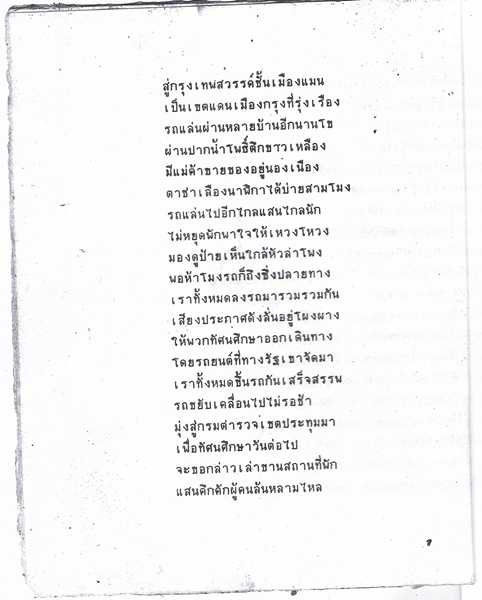 สู่กรุงเทพสวรรค์ชั้นเมืองแมน
เป็นเขตแดนเมืองกรุงที่รุ่งเรือง
รถแล่นผ่านหลายบ้านอีกนานโข
ผ่านปากน้ำโพธิ์สึกขาวเหลือง
มีแม่ค้าขายของอยู่นองเนือง
ตาชำเลืองนาฬิกาได้บ่ายสามโมง
รถแล่นไปอีกไกลแสนไกลนัก
ไม่หยุดพักพาใจให้เหวงโหวง
มองดูป้ายเห็นใกล้หัวลำโพง
พอห้าโมงรถก็ถึงซึ่งปลายทาง
เราทั้งหมดลงรถมารวมรวมกัน
เสียงประกาศดังลั่นอยู่โผงผาง
ให้พวกทัศนศึกษาออกเดินทาง
โดยรถยนต์ที่ทางรัฐเขาจัดมา
เราทั้งหมดขึ้นรถกันเสร็จสรรพ
รถขยับเคลื่อนไปไม่รอช้า
มุ่งสู่กรมตำรวจเขตประทุมมา
เพื่อทัศนศึกษาวันต่อไป
จะขอกล่าวเล่าขานสถานที่พัก
แสนคึกคักผู้คนล้นหลามไหล